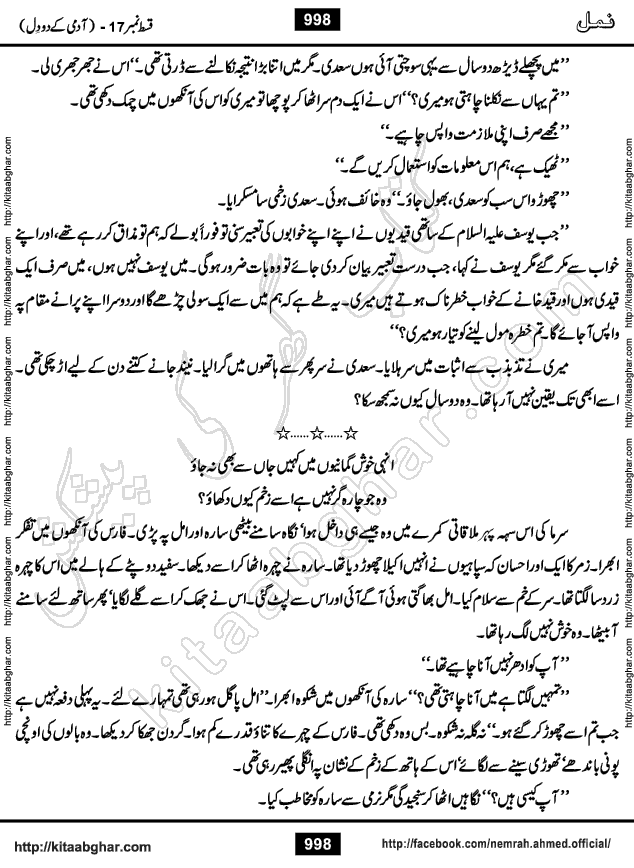 نمل
998
قسط نمبر 17 - (آدمی کے دو دل)
’’میں پچھلے ڈیڑھ دو سال سے یہی سوچتی آئی ہوں سعدی۔ مگر میں اتنا بڑا نتیجہ نکالنے سے ڈرتی تھی۔‘‘ اس نے جھرجھری لی۔
’’تم یہاں سے نکلنا چاہتی ہو میری؟‘‘ اس نے ایک دم سر اٹھا کر پوچھا تو میری کو اس کی آنکھوں میں چمک دکھی تھی۔
’’مجھے صرف اپنی ملازمت واپس چاہیے۔‘‘
’’ٹھیک ہے، ہم اس معلومات کو استعمال کریں گے۔‘‘
’’چھوڑو اس سب کو سعدی، بھول جاؤ۔‘‘ وہ خائف ہوئی۔ سعدی زخمی سا مسکرایا۔
’’جب یوسف علیہ السلام کے ساتھی قیدیوں نے اپنے اپنے خوابوں کی تعبیر سنی تو فوراً بولے کہ ہم تو مذاق کر رہے تھے، اور اپنے
خواب سے مکر گئے مگر یوسف نے کہا، جب درست تعبیر بیان کر دی جائے تو وہ بات ضرور ہو گی۔ میں یوسف نہیں ہوں، میں صرف ایک
قیدی ہوں اور قید خانے کے خواب خطرناک ہوتے ہیں میری۔ یہ طے ہے کہ ہم میں سے ایک سولی چڑھے گا اور دوسرا اپنے پرانے مقام پہ
واپس آ جائے گا۔ تم خطرہ مول لینے کو تیار ہو میری؟‘‘
میری نے تذبذب سے اثبات میں سر ہلایا۔ سعدی نے سر پھر سے ہاتھوں میں گرا لیا۔ نیند جانے کتنے دن کے لیے اڑ چکی تھی۔
اسے ابھی تک یقین نہیں آ رہا تھا۔ وہ دو سال کیوں نہ سمجھ سکا؟
☆......☆......☆
انہی خوش گمانیوں میں کہیں جاں سے بھی نہ جاؤ
وہ جو چارہ گر نہیں ہے اسے زخم کیوں دکھاؤ؟
سرما کی اس سہ پہر ملاقاتی کمرے میں وہ جیسے ہی داخل ہوا‘ نگاہ سامنے بیٹھی سارہ اور امل پہ پڑی۔ فارس کی آنکھوں میں تفکر
ابھرا۔ زمر کا ایک اور احسان کہ سپاہیوں نے انہیں اکیلا چھوڑ دیا تھا۔ سارہ نے چہرہ اٹھا کر اسے دیکھا۔ سفید دوپٹے کے ہالے میں اس کا چہرہ
زرد سا لگتا تھا۔ سر کے خم سے سلام کیا۔ امل بھاگتی ہوئی آگے آئی اور اس سے لپٹ گئی۔ اس نے جھک کر اسے گلے لگایا‘ پھر ساتھ لئے سامنے
آ بیٹھا۔ وہ خوش نہیں لگ رہا تھا۔
’’آپ کو ادھر نہیں آنا چاہیے تھا۔‘‘
’’تمہیں لگتا ہے میں آنا چاہتی تھی؟‘‘ سارہ کی آنکھوں میں شکوہ ابھرا۔ ’’امل پاگل ہو رہی تھی تمہارے لئے۔ یہ پہلی دفعہ نہیں ہے
جب تم اسے چھوڑ کر گئے ہو۔‘‘ نہ گلہ نہ شکوہ۔ بس وہ دکھی تھی۔ فارس کے چہرے کا تناؤ قدرے کم ہوا۔ گردن جھکا کر دیکھا۔ وہ بالوں کی اونچی
پونی باندھے‘ تھوڑی سینے سے لگائے‘ اس کے ہاتھ کے زخم کے نشان پہ انگلی پھیر رہی تھی۔
’’آپ کیسی ہیں؟‘‘ نگاہیں اٹھا کر سنجیدگی مگر نرمی سے سارہ کو مخاطب کیا۔
http://kitaabghar.com
998
http://facebook.com/nemrah.ahmed.official/
http://kitaabghar.com
کتاب گھر کی پیشکش
kitaabghar.com